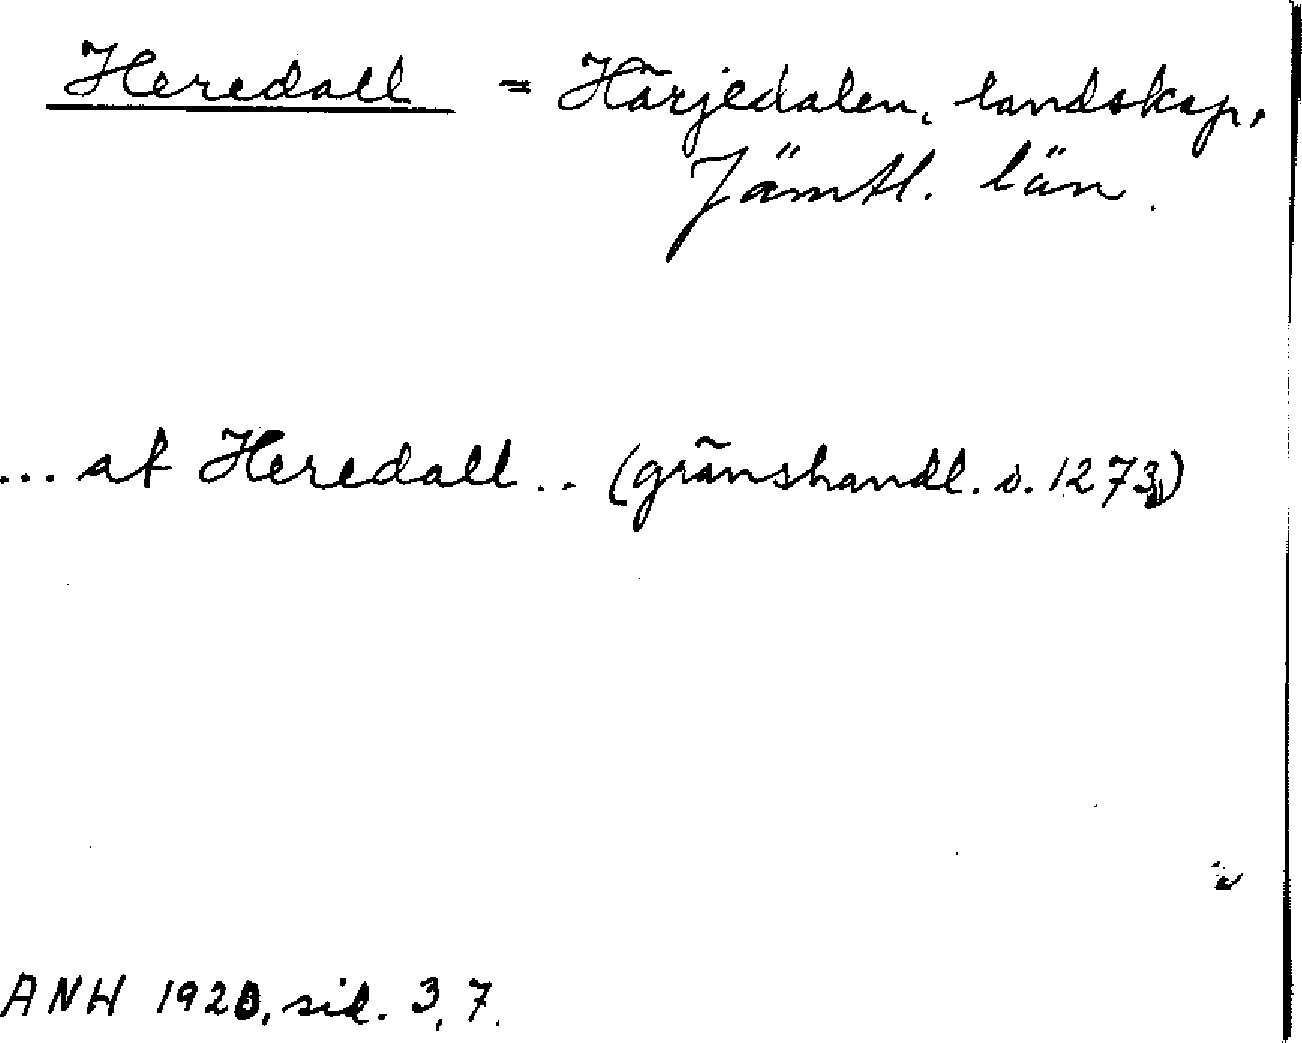 Heredall = Härjedalen, landskap,
Jämtl. län.
... af Heredall .. (gränshandl. s. 1273)
ANH 1920, sid. 3, 7.